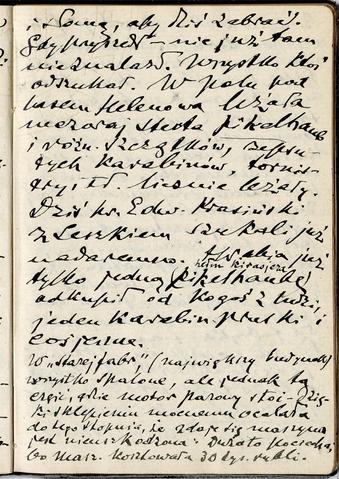 i słomą, aby dziś zabrać.
Gdy przyszedł – nie już tam
nie znalazł. Wszystko ktoś
odszukał. W polu pod
lasem Helenowa leżała
wczoraj sterta pikelhaub
i różn. szczątków, zepsu-
tych karabinów, tornis-
try, i t.d. licznie leżały.
Dziś hr. Edw. Krasiński
z Leszkiem szukali już
nadaremno. już
hełm kirasjera
tylko jedną pikelhaubę
odkupił od kogoś z ludzi, i
jeden karabin pruski
W „starej fabr.", (największy budynek)
wszystko spalone, ale jednak ta
część, gdzie motor parowy stoi – dzię-
ki sklepieniu mocnemu ocalała
do tego stopnia, że zdaje się maszyna
jest nieuszkodzona: Duża to pociecha,
bo masz. kosztowała 30 tys. rubli.